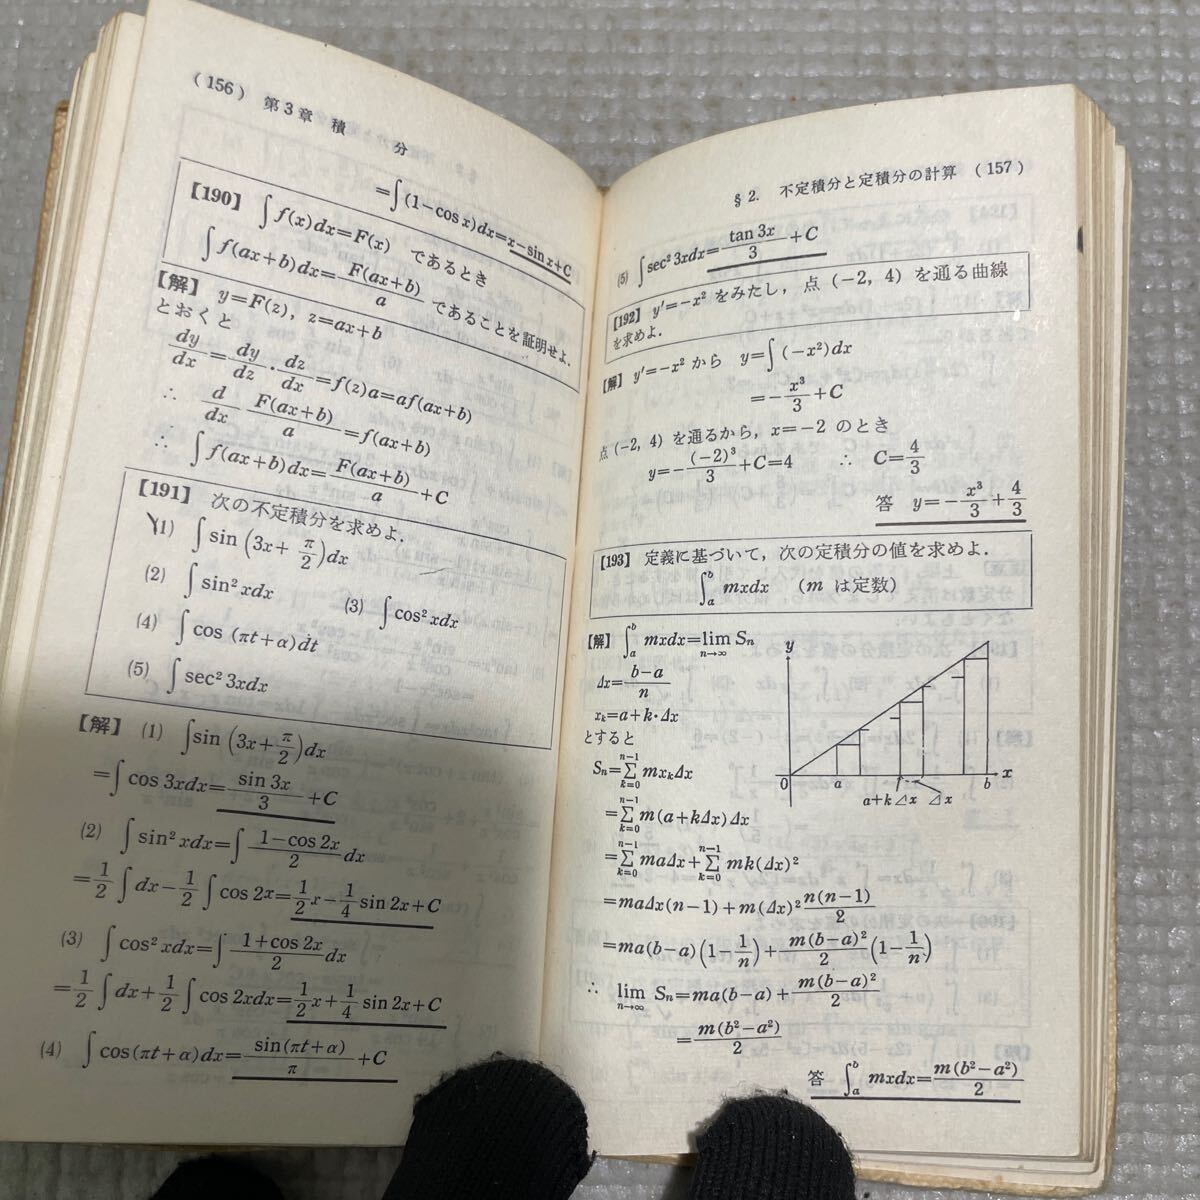 (156) 第3章 積 分
=∫(1−cos x)dx=x−sin x+C
【190】 ∫f(x)dx=F(x) であるとき
∫f(ax+b)dx=F(ax+b)/a であることを証明せよ.
【解】 y=F(z), z=ax+b
とおくと
dy/dx=dy/dz・dz/dx=f(z)a=af(ax+b)
∴ d/dx F(ax+b)/a=f(ax+b)
∴ ∫f(ax+b)dx=F(ax+b)/a+C
【191】 次の不定積分を求めよ.
(1) ∫sin(3x+π/2)dx
(2) ∫sin²xdx (3) ∫cos²xdx
(4) ∫cos(πt+α)dt
(5) ∫sec²3xdx
【解】 (1) ∫sin(3x+π/2)dx
=∫cos 3xdx=sin 3x/3+C
(2) ∫sin²xdx=∫(1−cos 2x)/2 dx
=1/2∫dx−1/2∫cos 2x=1/2x−1/4 sin 2x+C
(3) ∫cos²xdx=∫(1+cos 2x)/2 dx
=1/2∫dx+1/2∫cos 2xdx=1/2x+1/4 sin 2x+C
(4) ∫cos(πt+α)dx=sin(πt+α)/π+C
§2. 不定積分と定積分の計算 (157)
(5) ∫sec²3xdx=tan 3x/3+C
【192】 y′=−x² をみたし, 点(−2, 4)を通る曲線
を求めよ.
【解】 y′=−x² から y=∫(−x²)dx
=−x³/3+C
点(−2, 4)を通るから, x=−2 のとき
y=−(−2)³/3+C=4 ∴ C=4/3
答 y=−x³/3+4/3
【193】 定義に基づいて, 次の定積分の値を求めよ.
∫ₐᵇ mxdx (m は定数)
【解】 ∫ₐᵇ mxdx=lim n→∞ Sn
Δx=(b−a)/n
xₖ=a+k・Δx
とすると
Sn=Σ k=0 n−1 mxₖΔx
=Σ k=0 n−1 m(a+kΔx)Δx
=Σ k=0 n−1 maΔx+Σ k=0 n−1 mk(Δx)²
=maΔx(n−1)+m(Δx)² n(n−1)/2
=ma(b−a)(1−1/n)+m(b−a)²/2(1−1/n)
∴ lim n→∞ Sn=ma(b−a)+m(b−a)²/2
=m(b²−a²)/2
答 ∫ₐᵇ mxdx=m(b²−a²)/2
y
0 a b x
a+kΔx Δx